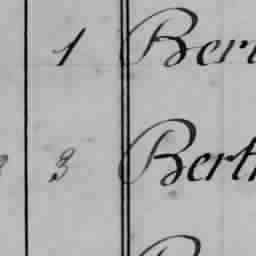 1 Ber
3 Bert